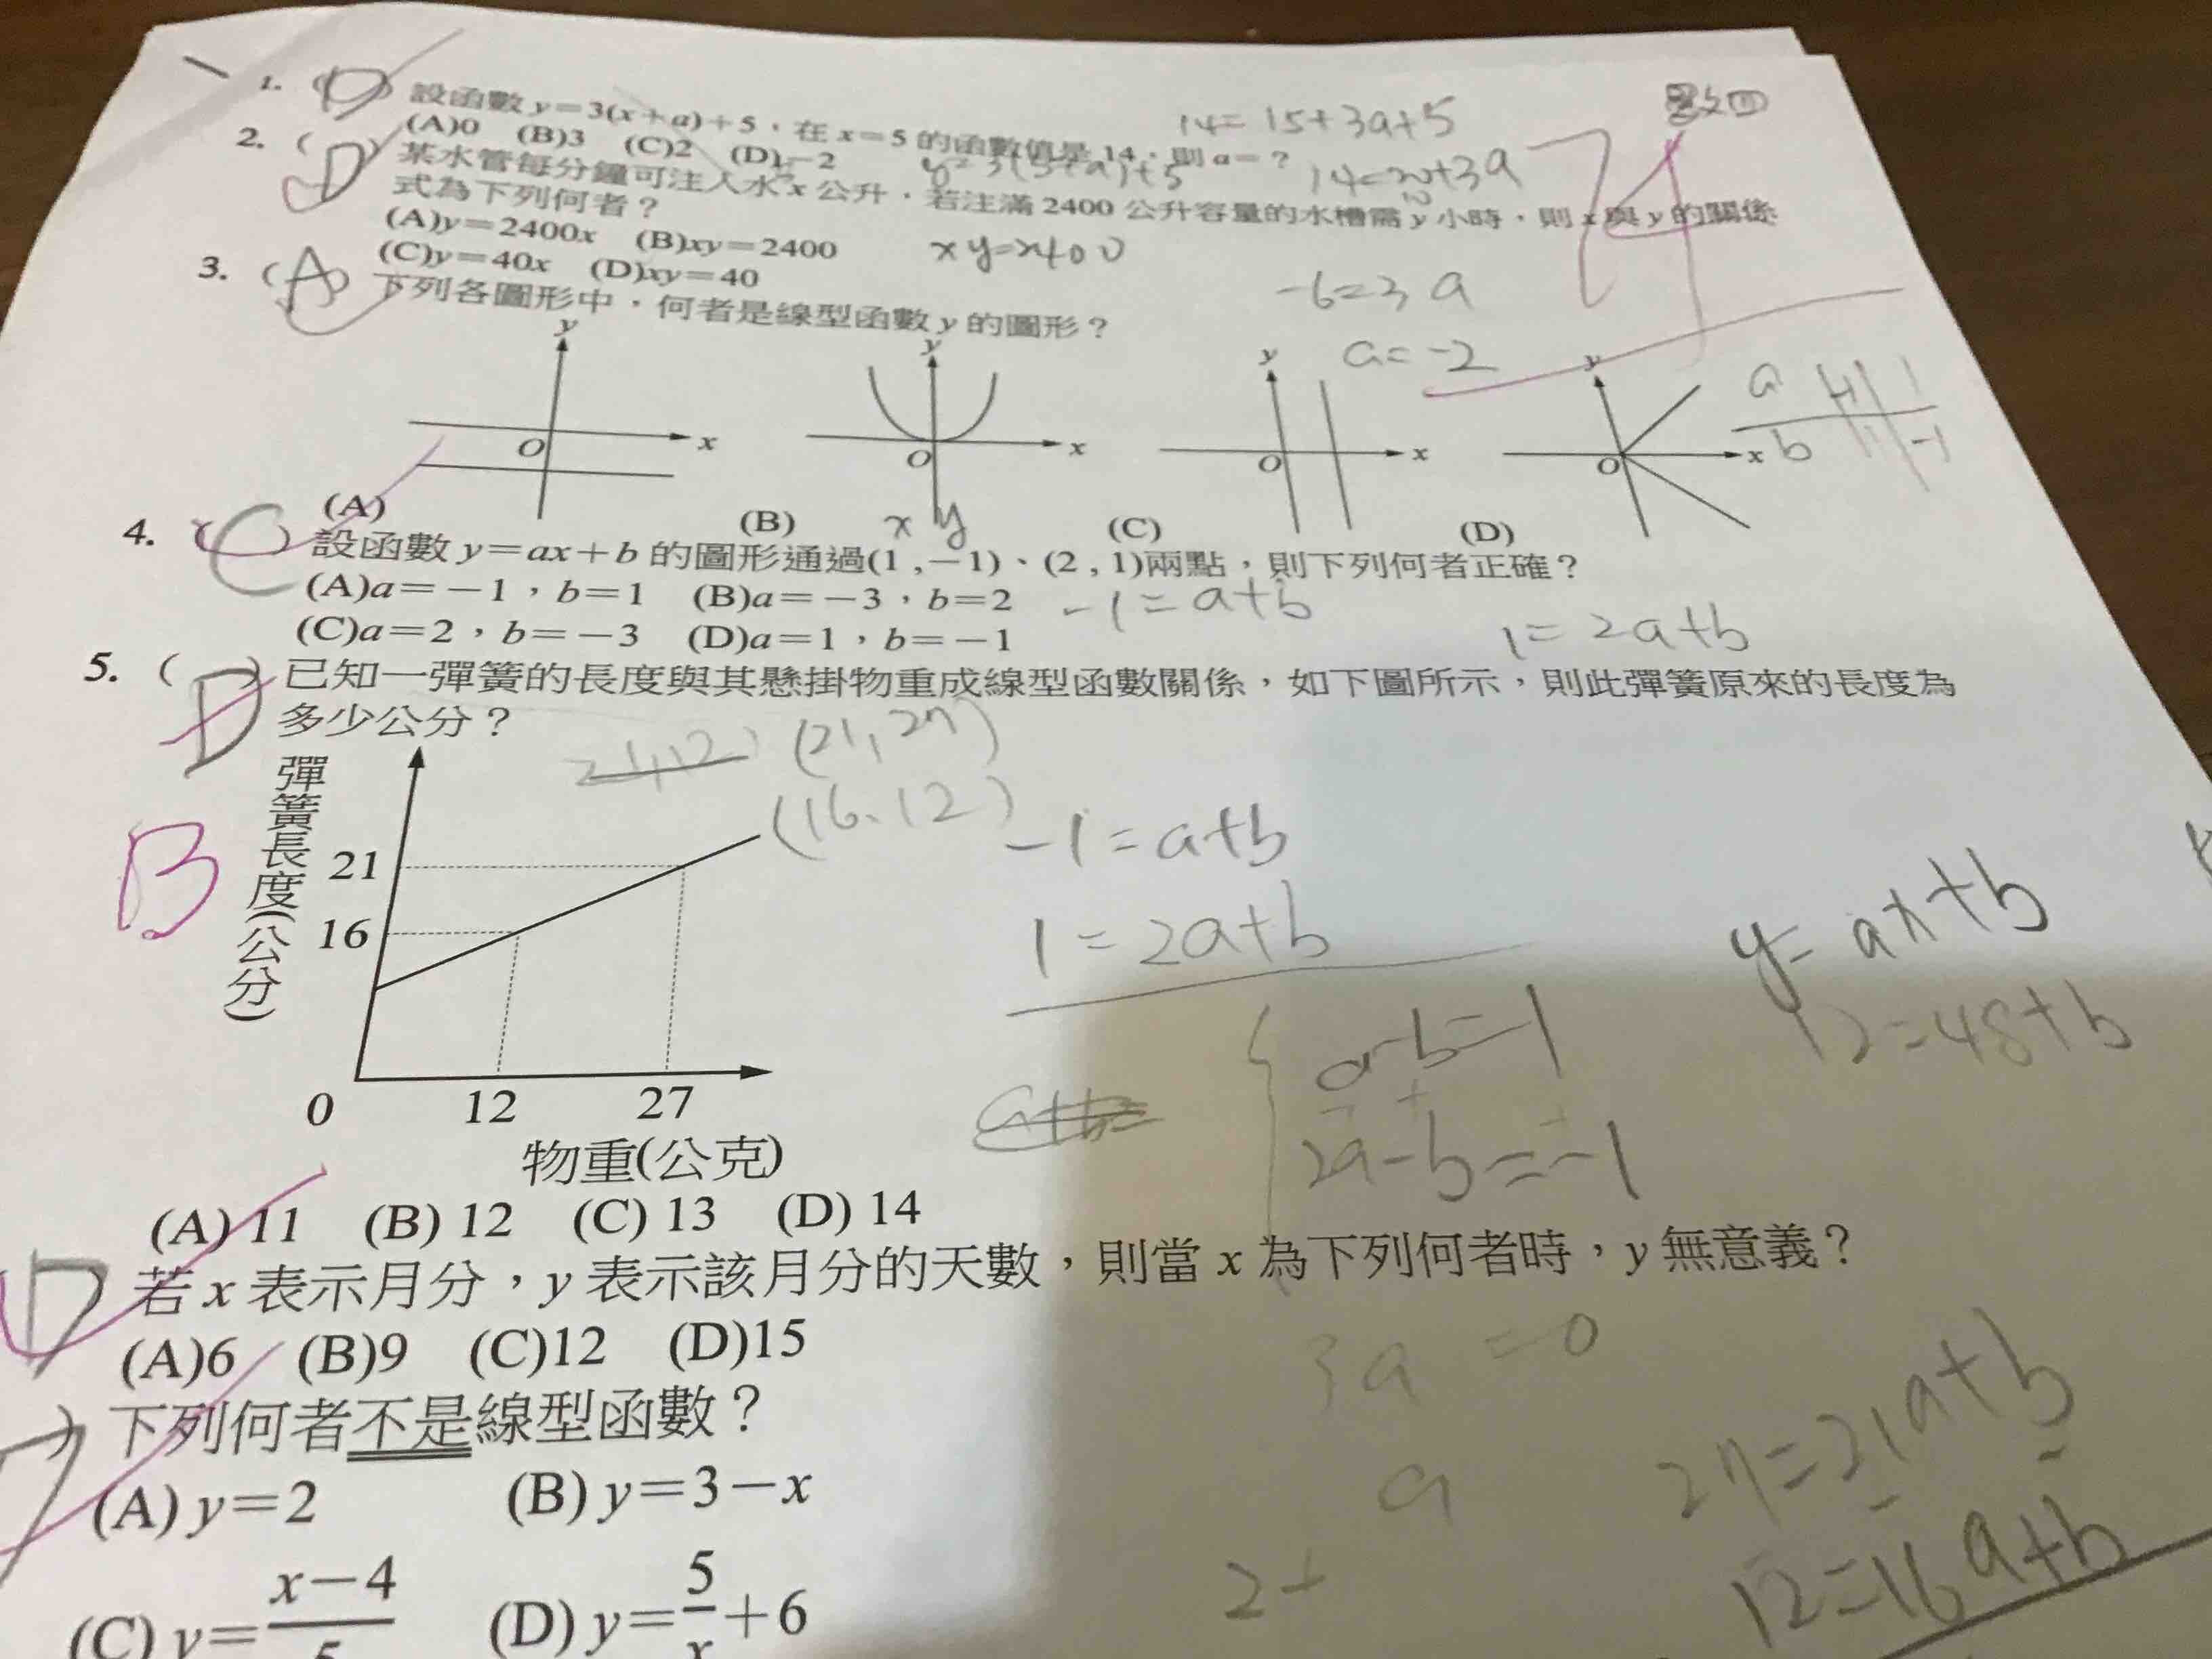 1. (D) 設函數 y=3(x+a)+5，在 x=5 的函數值是 14，則 a=？
(A)0 (B)3 (C)2 (D)-2
14=15+3a+5
y=3(5+a)+5
14=20+3a
2. (D) 某水管每分鐘可注入水 x 公升，若注滿 2400 公升容量的水槽需 y 小時，則 x 與 y 的關係
式為下列何者？
(A)y=2400x (B)xy=2400
(C)y=40x (D)xy=40
xy=2400
-6=3a
a=-2
3. (A) 下列各圖形中，何者是線型函數 y 的圖形？
y y y y
O x O x O x O x
a 1
b 1 -1
(A) (B) (C) (D)
x y
4. (C) 設函數 y=ax+b 的圖形通過(1 ,-1)、(2 , 1)兩點，則下列何者正確？
(A)a=-1，b=1 (B)a=-3，b=2
(C)a=2，b=-3 (D)a=1，b=-1
-1=a+b
1=2a+b
5. (D) 已知一彈簧的長度與其懸掛物重成線型函數關係，如下圖所示，則此彈簧原來的長度為
多少公分？
(21,27)
(16、12)
B
彈簧長度(公分)
21
16
0 12 27
物重(公克)
-1=a+b
1=2a+b
a-b=1
2a-b=-1
y=ax+b
12=48+b
(A) 11 (B) 12 (C) 13 (D) 14
D 若 x 表示月分，y 表示該月分的天數，則當 x 為下列何者時，y 無意義？
(A)6 (B)9 (C)12 (D)15
3a =0
) 下列何者不是線型函數？
(A) y=2 (B) y=3-x
(C) y=x-4/5 (D) y=5/x+6
a
2+
27=21a+b
12=16a+b